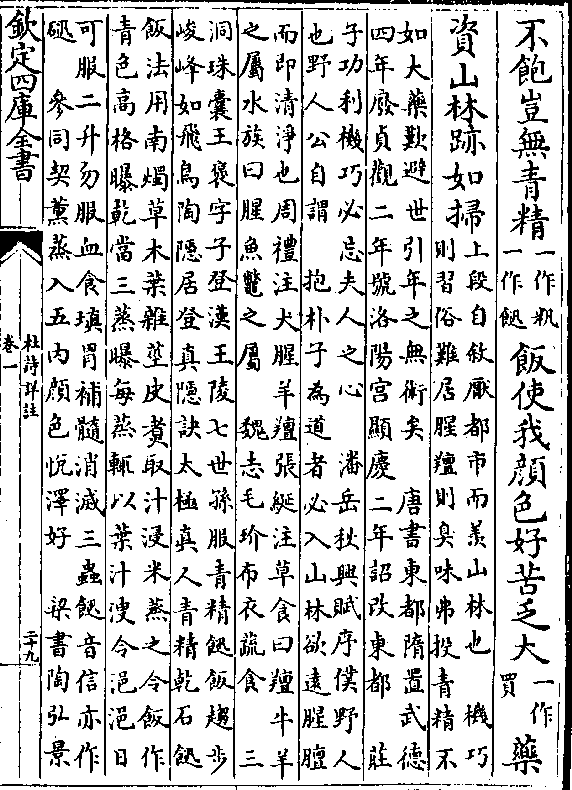 不飽豈無青精
一作
一作䬳
飯使我顔色好苦乏大
一作
買
藥
資山林跡如掃
上段自敘厭都市而羨山林也 機巧
則習俗難居腥羶則臭味弗投青精不
如大藥歎避世引年之無術矣 唐書東都隋置武德
四年廢貞觀二年號洛陽宮顯慶二年詔改東都 莊
子功利機巧必忘夫人之心 潘岳秋興賦序僕野人
也野人公自謂 抱朴子為道者必入山林欲遠腥膻
而即清淨也周禮注犬腥羊羶張綖注草食曰羶牛羊
之屬水族曰腥魚鼈之屬 魏志毛玠布衣蔬食 三
洞珠囊王褒字子登漢王陵七世孫服青精䬳飯趨步
峻峰如飛鳥陶隱居登真隱訣太極真人青精乾石䬳
飯法用南燭草木葉雜莖皮煑取汁浸米蒸之令飯作
青色高格曝乾當三蒸曝每蒸輒以葉汁溲令浥浥日
可服二升勿服血食填胃補髓消滅三蟲䬳音信亦作
參同契薰蒸入五内顔色悅澤好 梁書陶弘景
欽定四庫全書
卷一
杜詩詳註
二十九